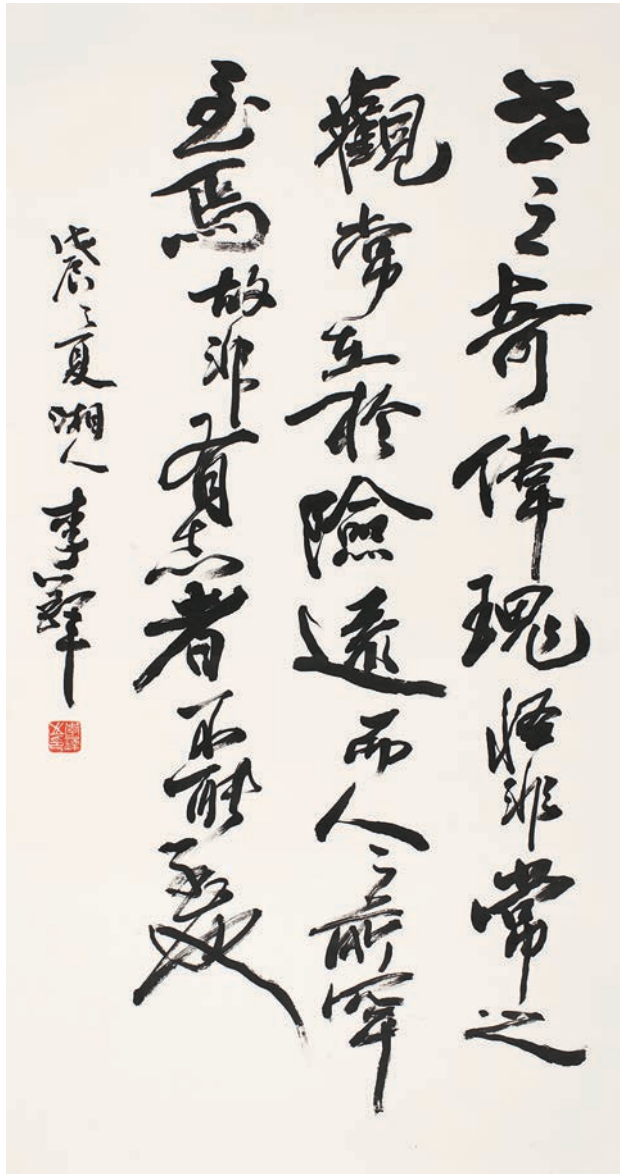 世之奇偉瑰怪非常之
觀常在於險遠而人之所罕
至焉故非有志者不能至矣
戊辰之夏湘人李鐸